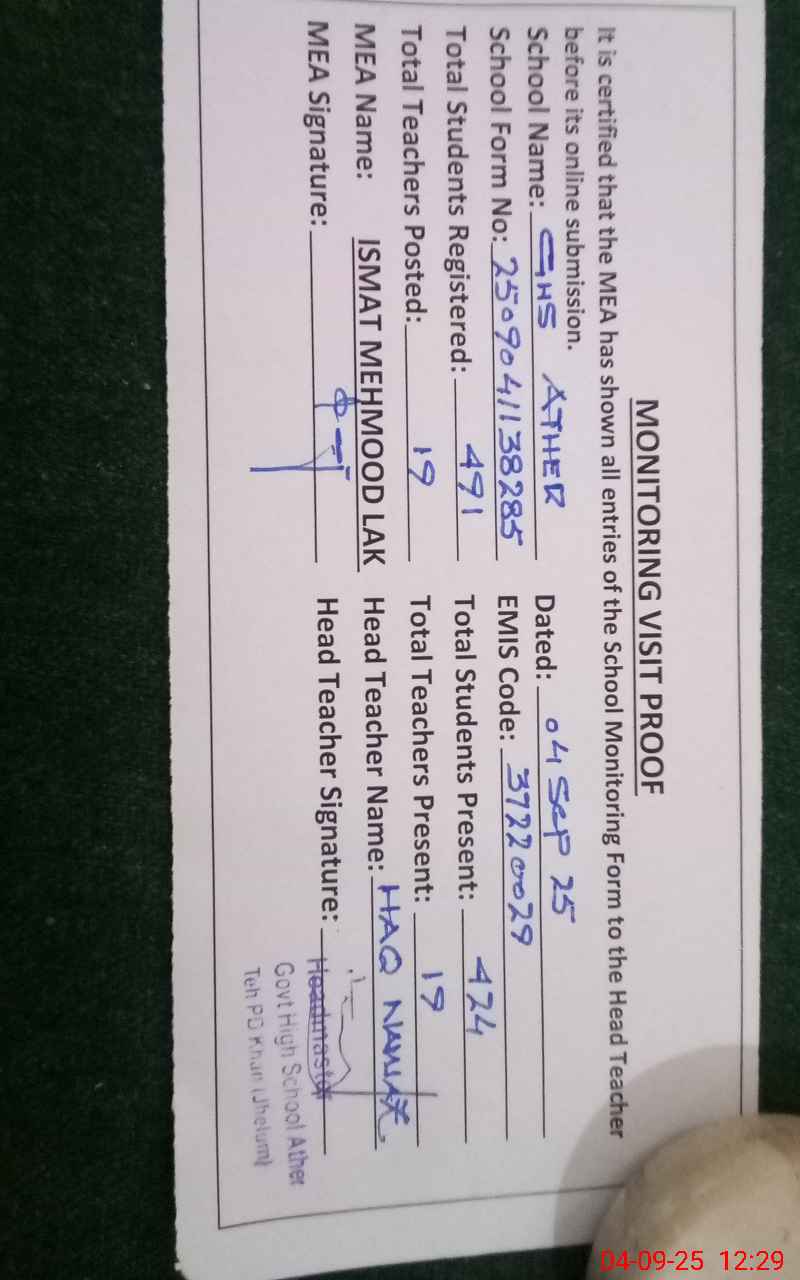 MONITORING VISIT PROOF
It is certified that the MEA has shown all entries of the School Monitoring Form to the Head Teacher
before its online submission.
School Name: GHS ATHER Dated: 04 Sep 25
School Form No: 2509041138285 EMIS Code: 37220029
Total Students Registered: 491 Total Students Present: 424
Total Teachers Posted: 19 Total Teachers Present: 19
MEA Name: ISMAT MEHMOOD LAK Head Teacher Name: HAQ NAWAZ
MEA Signature: Head Teacher Signature:
Headmaster
Govt High School Ather
Teh PD Khan (Jhelum)
04-09-25 12:29